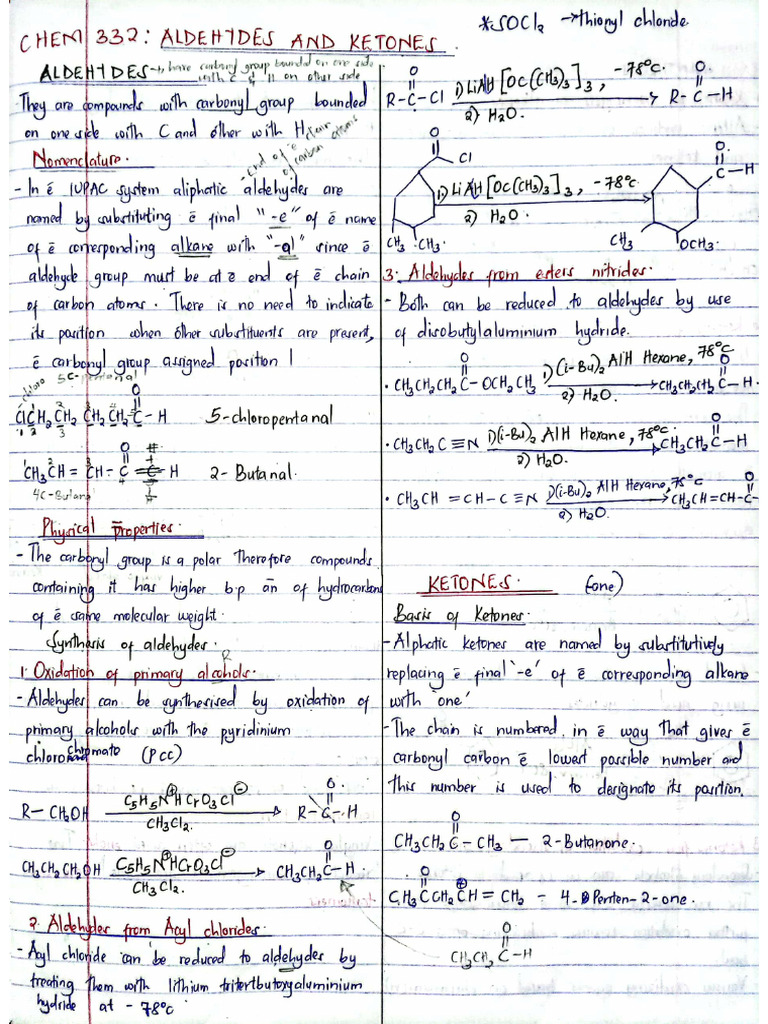 *SOCl2 → thionyl chloride.
CHEM 332: ALDEHYDES AND KETONES.
ALDEHYDES → have carbonyl group bounded on one side
with C & H on other side
- They are compounds with carbonyl group bounded
on one side with C and other with H
Nomenclature.
- End of ē chain
of carbon atoms
- In ē IUPAC system aliphatic aldehydes are
named by substituting ē final "-e" of ē name
of ē corresponding alkane with "-al" since ē
aldehyde group must be at ē end of ē chain
of carbon atoms. There is no need to indicate
its position when other substituents are present,
ē carbonyl group assigned position 1
chloro 5C-pentanal
O
ClCH2CH2CH2CH2C-H 5-chloropentanal
O
CH3CH=CH-C-C-H 2-Butanal.
4C-Butane
Physical properties.
- The carbonyl group is a polar therefore compounds
containing it has higher b.p ān of hydrocarbons
of ē same molecular weight.
Synthesis of aldehydes.
1. Oxidation of primary alcohols.
- Aldehydes can be synthesised by oxidation of
primary alcohols with the pyridinium
chlorochromate (PCC)
R-CH2OH C5H5N⊕HCrO3Cl⊖ → R-C-H
CH2Cl2.
O
CH3CH2CH2OH C5H5N⊕HCrO3Cl⊖ → CH3CH2C-H.
CH3Cl2.
2. Aldehydes from Acyl chlorides.
- Acyl chloride can be reduced to aldehydes by
treating them with lithium tritertbutoxyaluminium
hydride at -78°c
O O
R-C-Cl 1) LiAH[OC(CH3)3]3, -78°c. → R-C-H
2) H2O.
O
Cl
1) LiAH[OC(CH3)3]3, -78°c.
2) H2O.
O
C-H
CH3 .CH3. CH3 OCH3.
3. Aldehydes from esters nitrides.
- Both can be reduced to aldehydes by use
of disobutylaluminium hydride.
O O
. CH3CH2CH2C-OCH2CH3 1) (i-Bu)2 AlH Hexane, 78°c → CH3CH2CH2C-H.
2) H2O.
O
. CH3CH2C≡N 1) (i-Bu)2 AlH Hexane, 78°c. → CH3CH2C-H
2) H2O.
O
. CH3CH=CH-C≡N 1) (i-Bu)2 AlH Hexane, 78°c → CH3CH=CH-C-
2) H2O
KETONES. (one)
Basis of Ketones.
- Alphatic ketones are named by substitutively
replacing ē final '-e' of ē corresponding alkane
with 'one'
- The chain is numbered in ē way that gives ē
carbonyl carbon ē lowest possible number and
this number is used to designate its position.
O
CH3CH2C-CH3 — 2-Butanone.
O
CH3CCH2CH=CH2 - 4-Penten-2-one.
O
CH3CH2C-H